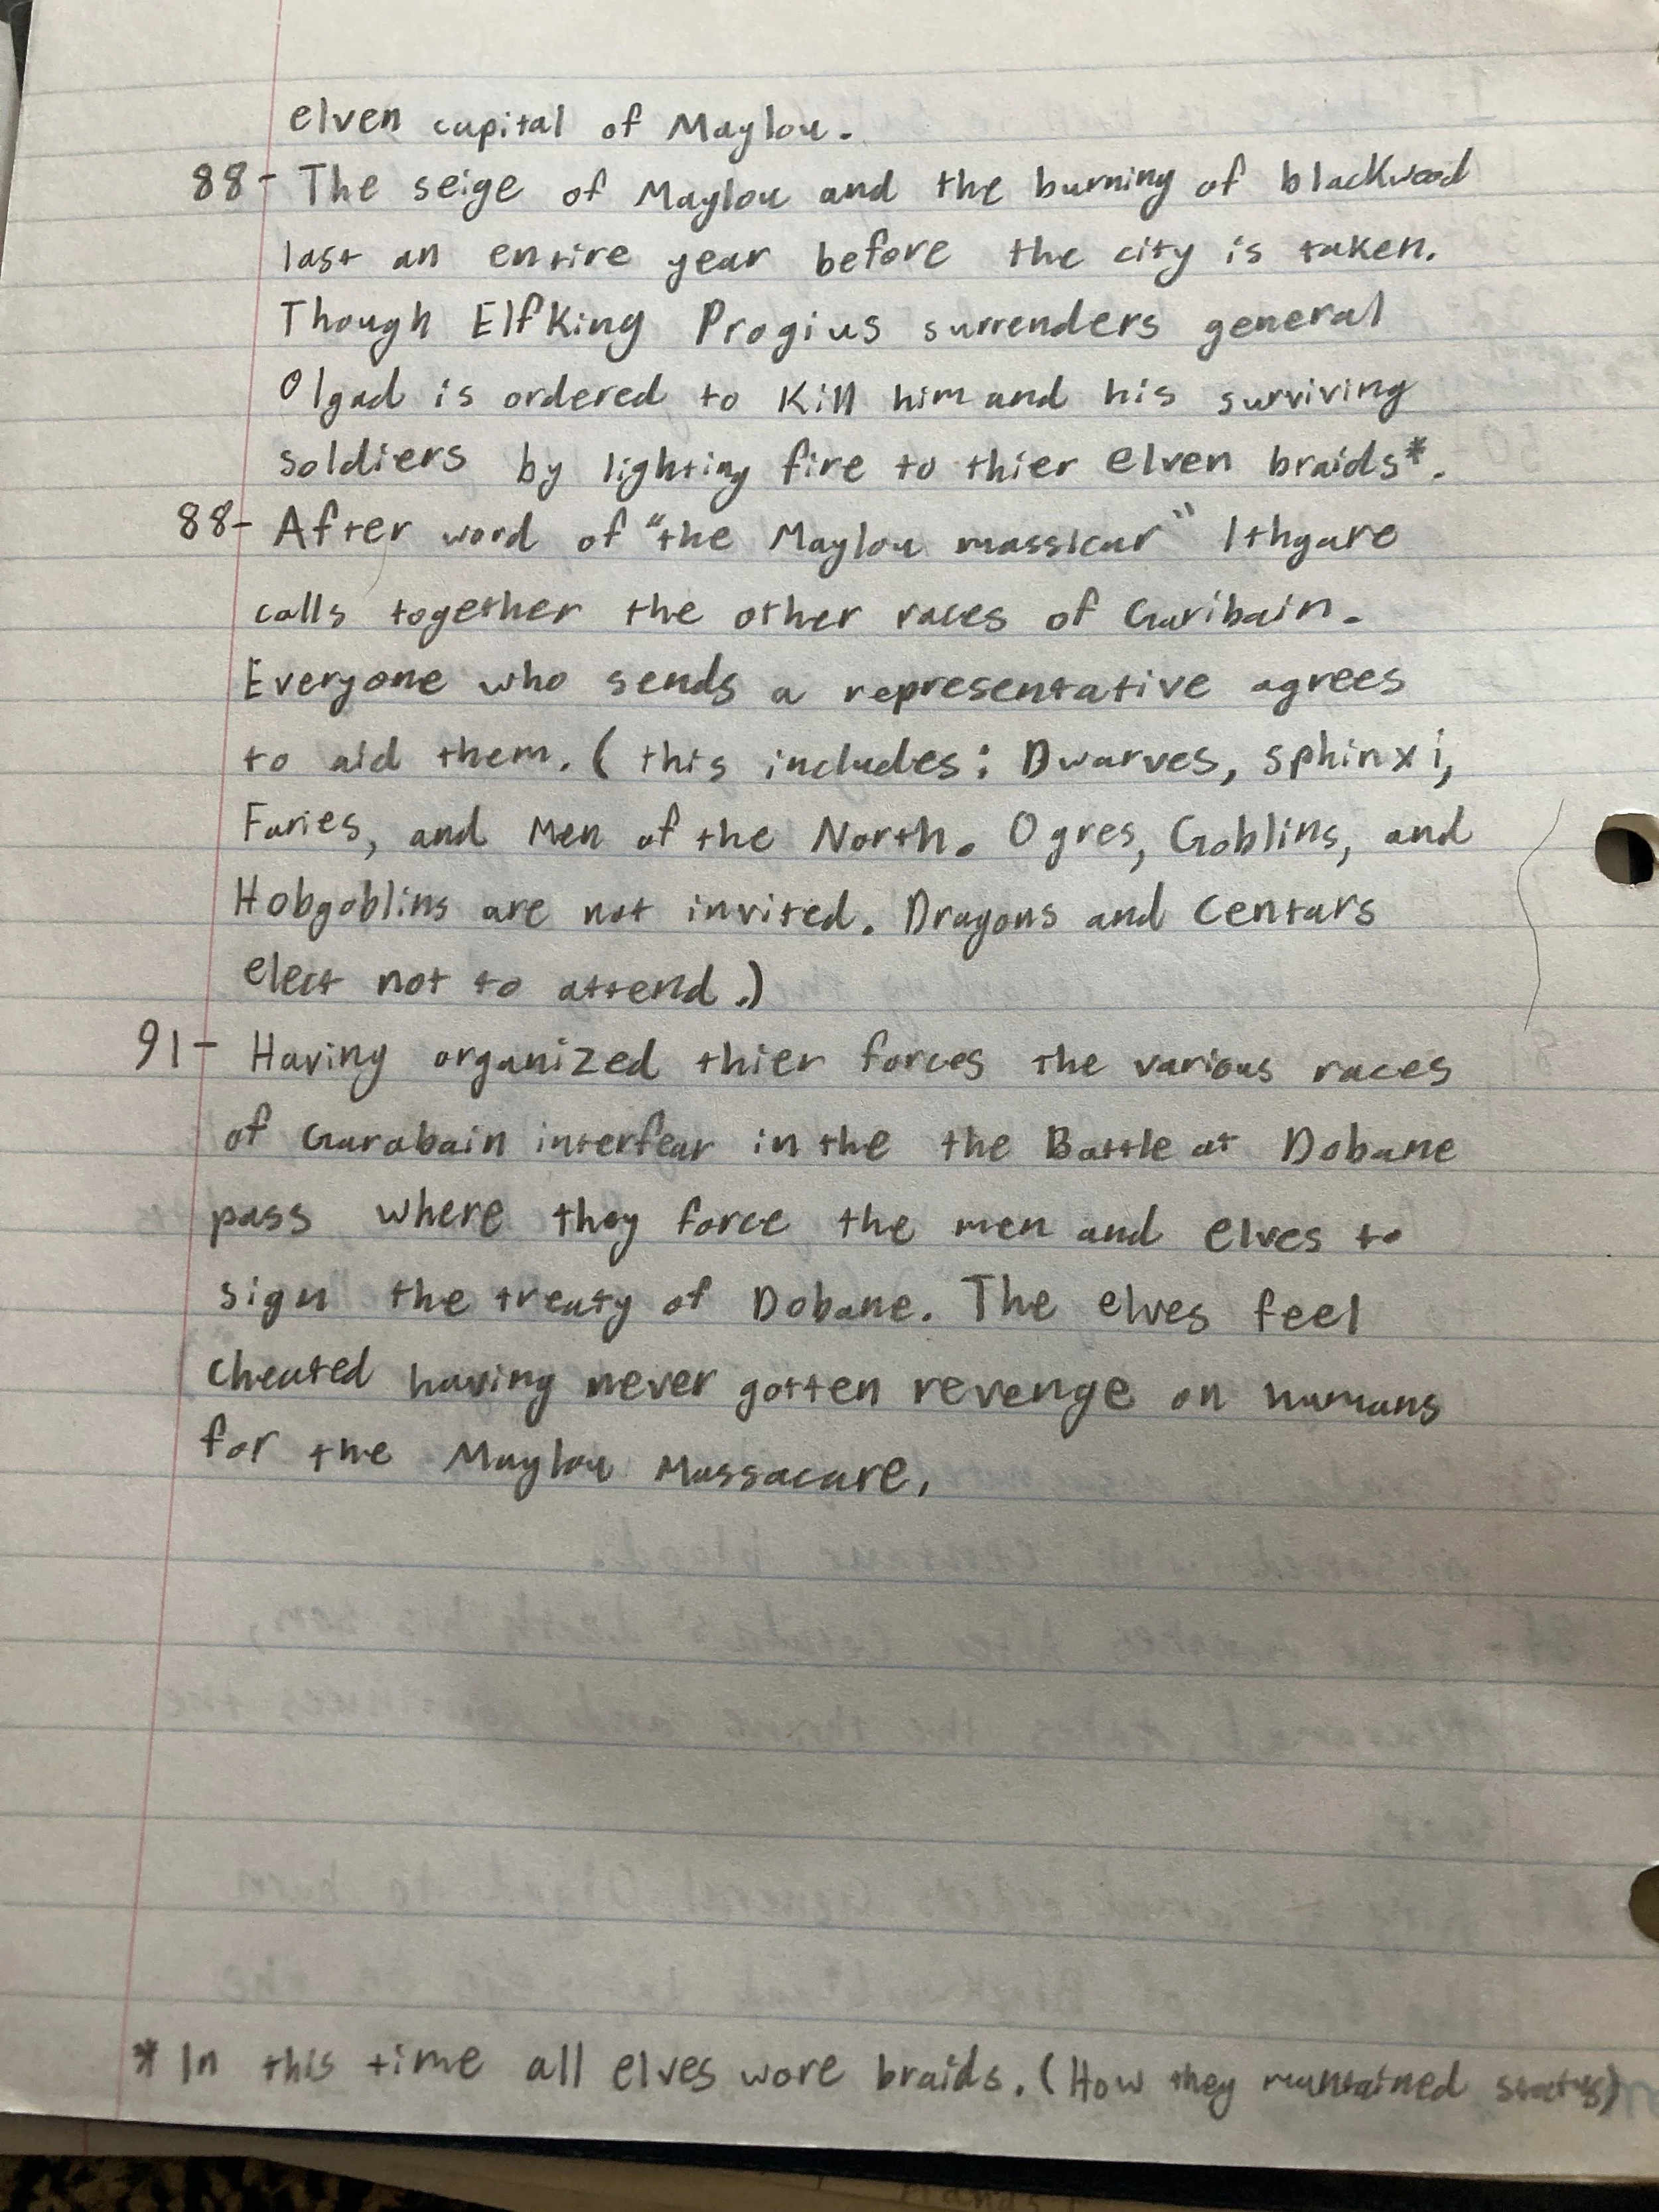 elven capital of Maylou.
88- The seige of Maylou and the burning of blackwood
last an entire year before the city is taken.
Though ElfKing Progius surrenders general
Olgad is ordered to Kill him and his surviving
soldiers by lighting fire to thier elven braids*.
88- After word of "the Maylou massicar" Ithgare
calls together the other races of Garibain.
Everyone who sends a representative agrees
to aid them. (this includes: Dwarves, sphinxi,
Faries, and Men of the North. Ogres, Goblins, and
Hobgoblins are not invited. Dragons and Centars
elect not to attend.)
91- Having organized thier forces the various races
of Garabain interfear in the the Battle at Dobane
pass where they force the men and elves to
sign the treaty of Dobane. The elves feel
cheated having never gotten revenge on humans
for the Maylou Massacare.
* In this time all elves wore braids. (How they mantained status)